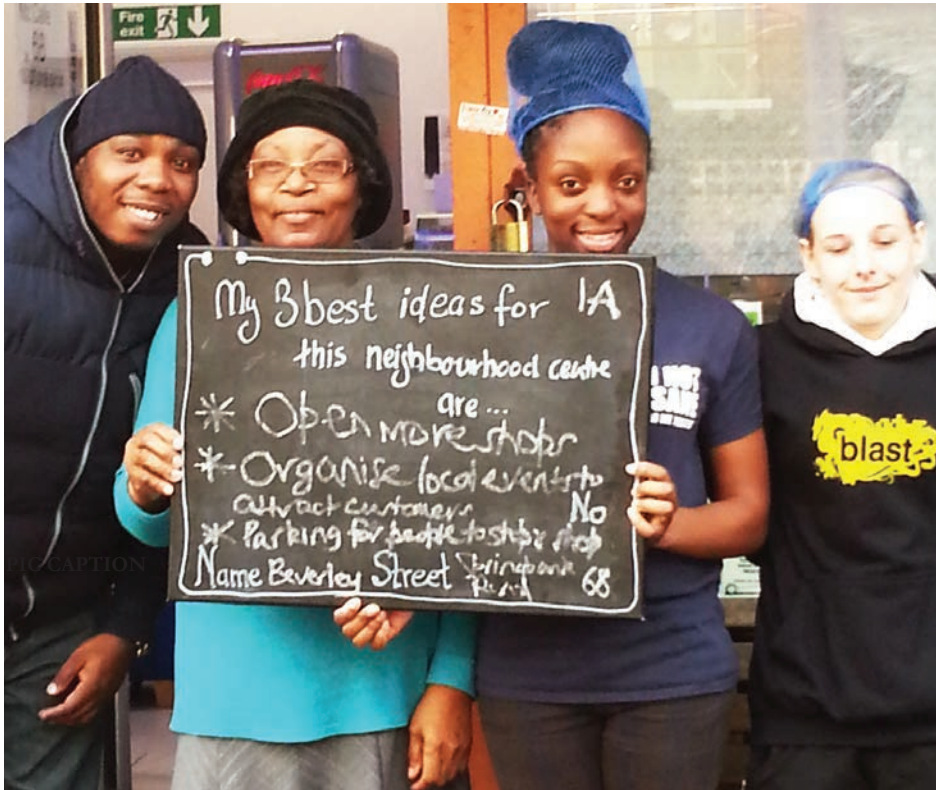 Fire
exit
My 3 best ideas for 1A
this neighbourhood centre
are...
* Open more shops
* Organise local events to
attract customers No
* Parking for people to stop & shop
Name Beverley Street Springbank 68
Road
blast
PIC CAPTION